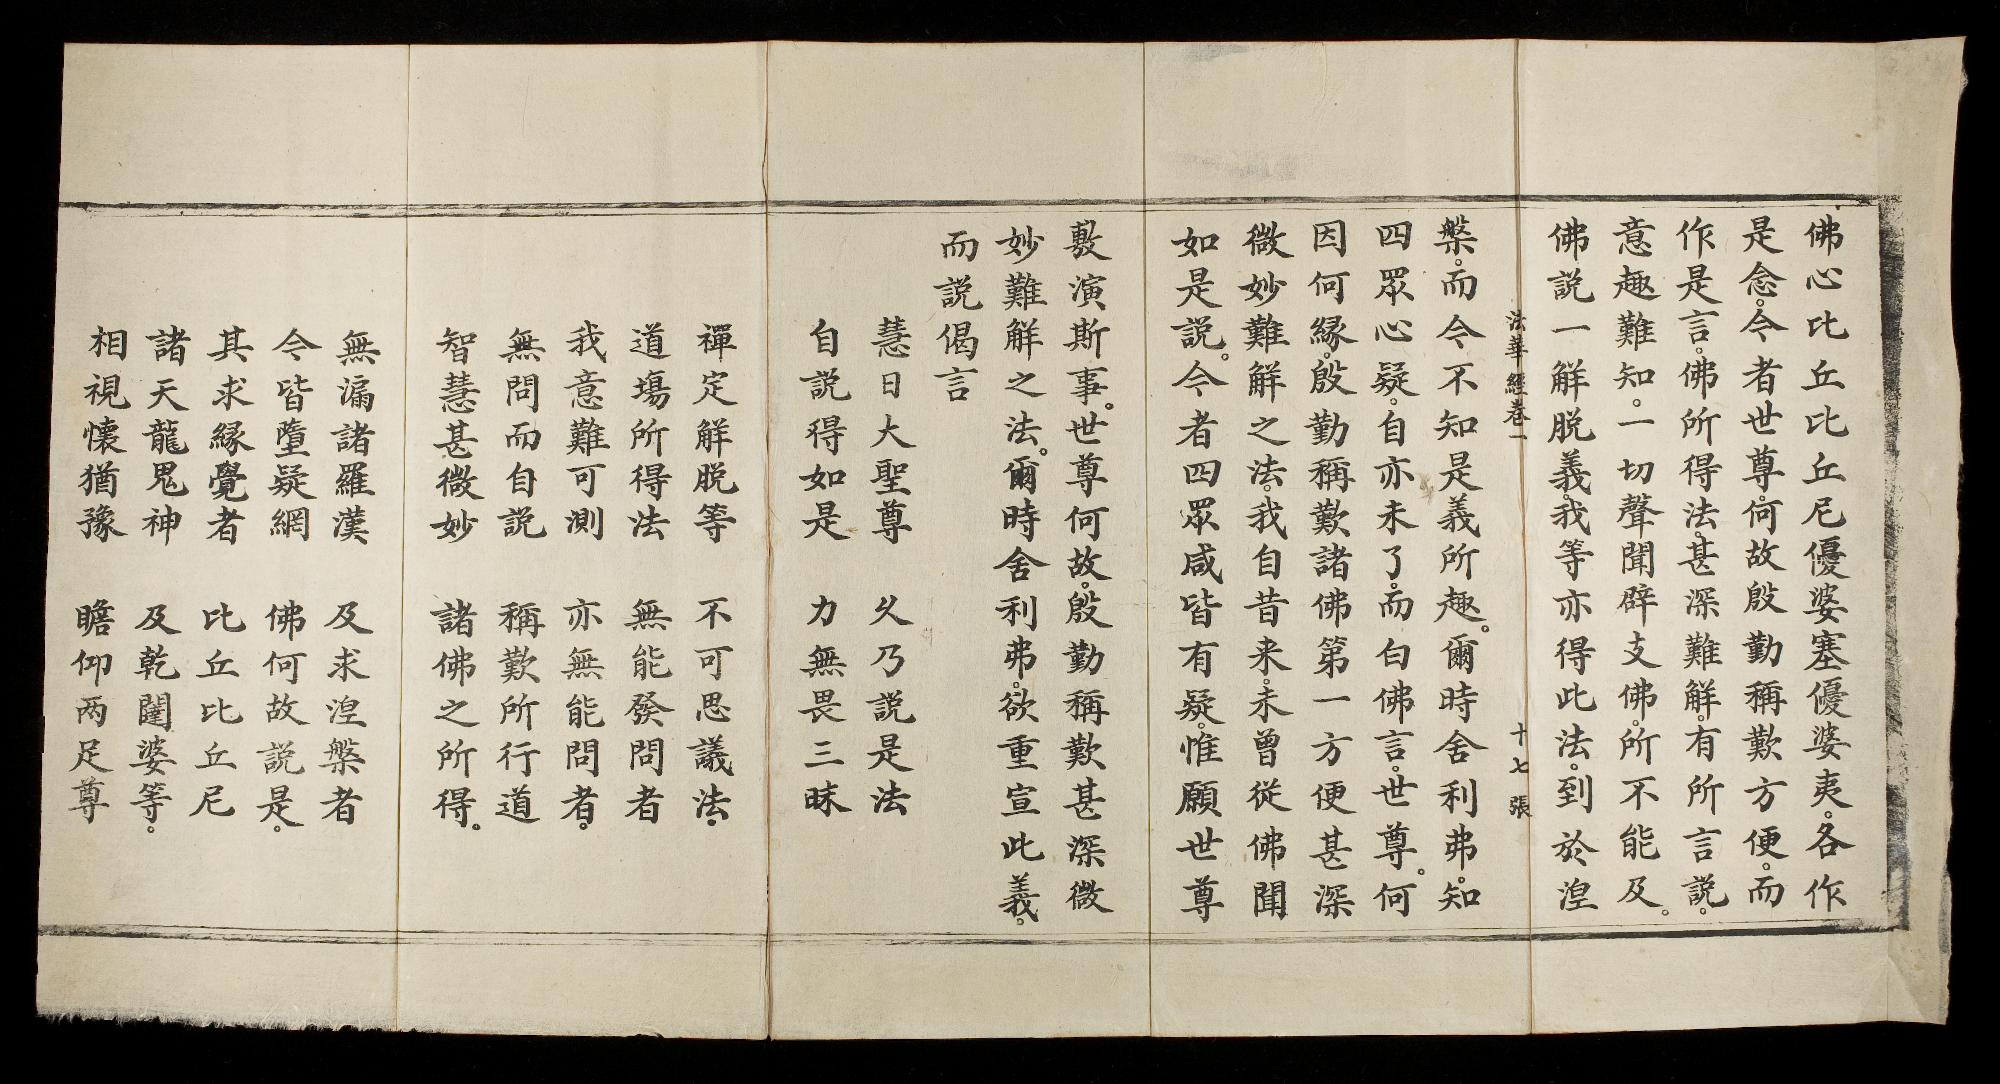 佛心比丘比丘尼優婆塞優婆夷。各作
是念。今者世尊。何故殷勤稱歎方便。而
作是言。佛所得法。甚深難解。有所言說。
意趣難知。一切聲聞辟支佛。所不能及。
佛說一解脫義。我等亦得此法。到於涅
法華經卷一 十七張
槃。而今不知是義所趣。爾時舍利弗。知
四眾心疑。自亦未了。而白佛言。世尊。何
因何緣。殷勤稱歎諸佛第一方便甚深
微妙難解之法。我自昔來。未曾從佛聞
如是說。今者四眾咸皆有疑。惟願世尊
敷演斯事。世尊何故。殷勤稱歎甚深微
妙難解之法。爾時舍利弗。欲重宣此義。
而說偈言
慧日大聖尊 久乃說是法
自說得如是 力無畏三昧
禪定解脫等 不可思議法。
道場所得法 無能發問者
我意難可測 亦無能問者。
無問而自說 稱歎所行道
智慧甚微妙 諸佛之所得。
無漏諸羅漢 及求涅槃者
今皆墮疑網 佛何故說是。
其求緣覺者 比丘比丘尼
諸天龍鬼神 及乾闥婆等。
相視懷猶豫 瞻仰两足尊